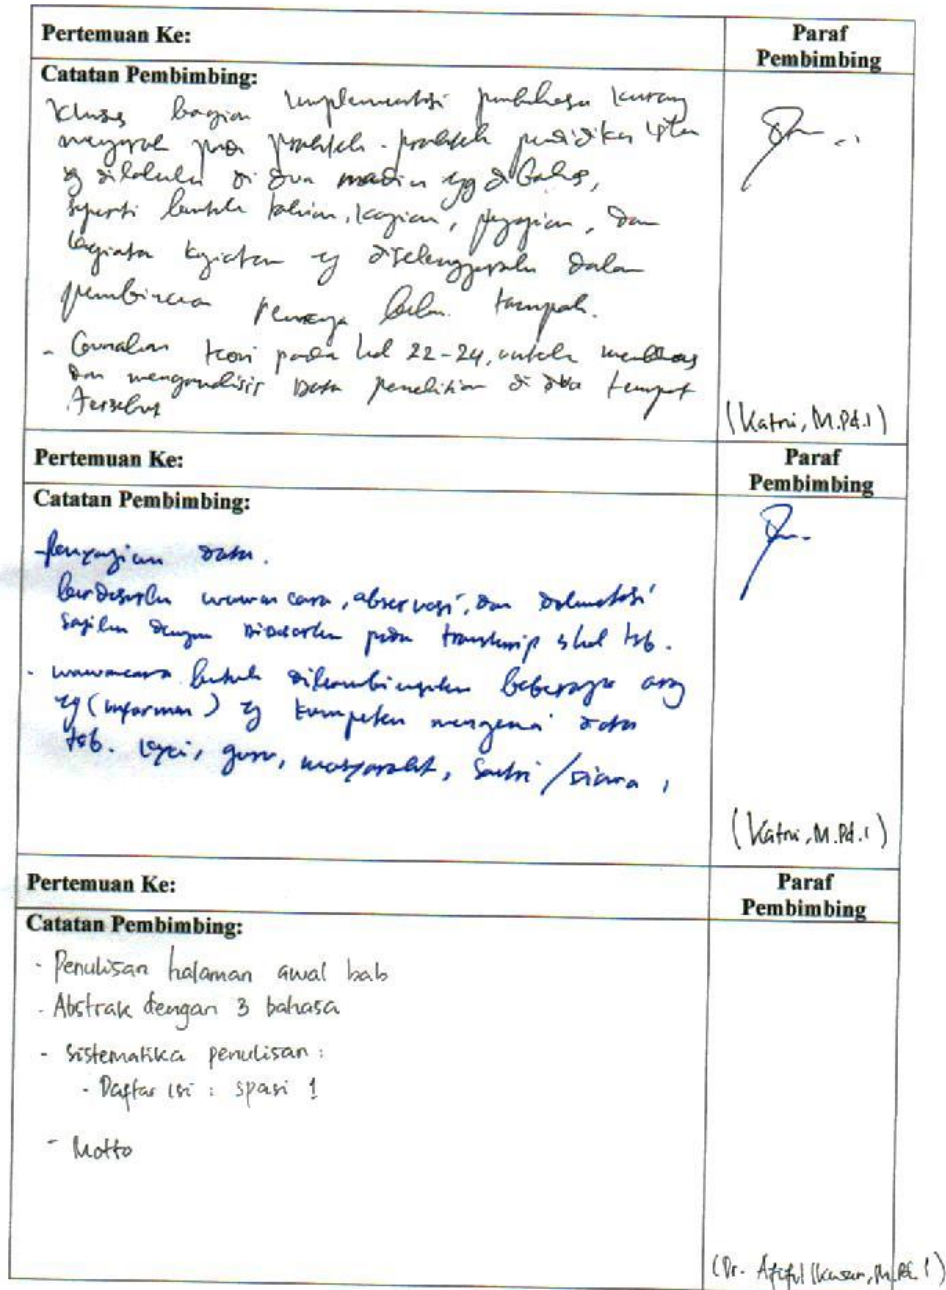 Pertemuan Ke:
Paraf
Pembimbing
Catatan Pembimbing:
Khusus bagian Implementasi pembahasa kurang
mengarah pada praktek-praktek pendidikan
yg dilakukan di dua madin yg dibahas,
seperti bentuk kajian, pengajian, dan
kegiatan kegiatan yg diselenggarakan dalam
pembinaan belum tampak.
(Katni, M.Pd.I)
- Gunakan teori pada hal 22-24, untuk membahas
dan menganalisis Data penelitian di dua tempat
tersebut
Pertemuan Ke:
Paraf
Pembimbing
Catatan Pembimbing:
- Penyajian data.
berdasarkan wawancara, observasi, dan dokumentasi
sajikan dengan didasarkan pada transkrip tsb.
- wawancara butuh dikombinasikan beberapa orang
yg (informan) yg kompeten mengenai data
tsb. kyai, guru, masyarakat, santri /siswa,
(Katni, M.Pd.I)
Pertemuan Ke:
Paraf
Pembimbing
Catatan Pembimbing:
- Penulisan halaman awal bab
- Abstrak dengan 3 bahasa
- Sistematika penulisan :
- Daftar isi : spasi 1
- Motto
(Dr. Afiful Ikhwan, M.Pd.I)